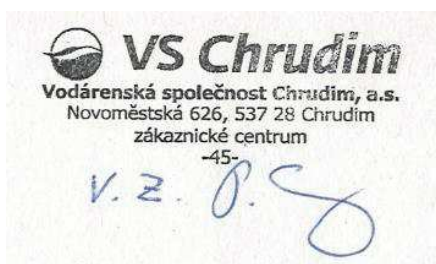 VS Chrudim
Vodárenská společnost Chrudim, a.s.
Novoměstská 626, 537 28 Chrudim
zákaznické centrum
-45-
v. z.